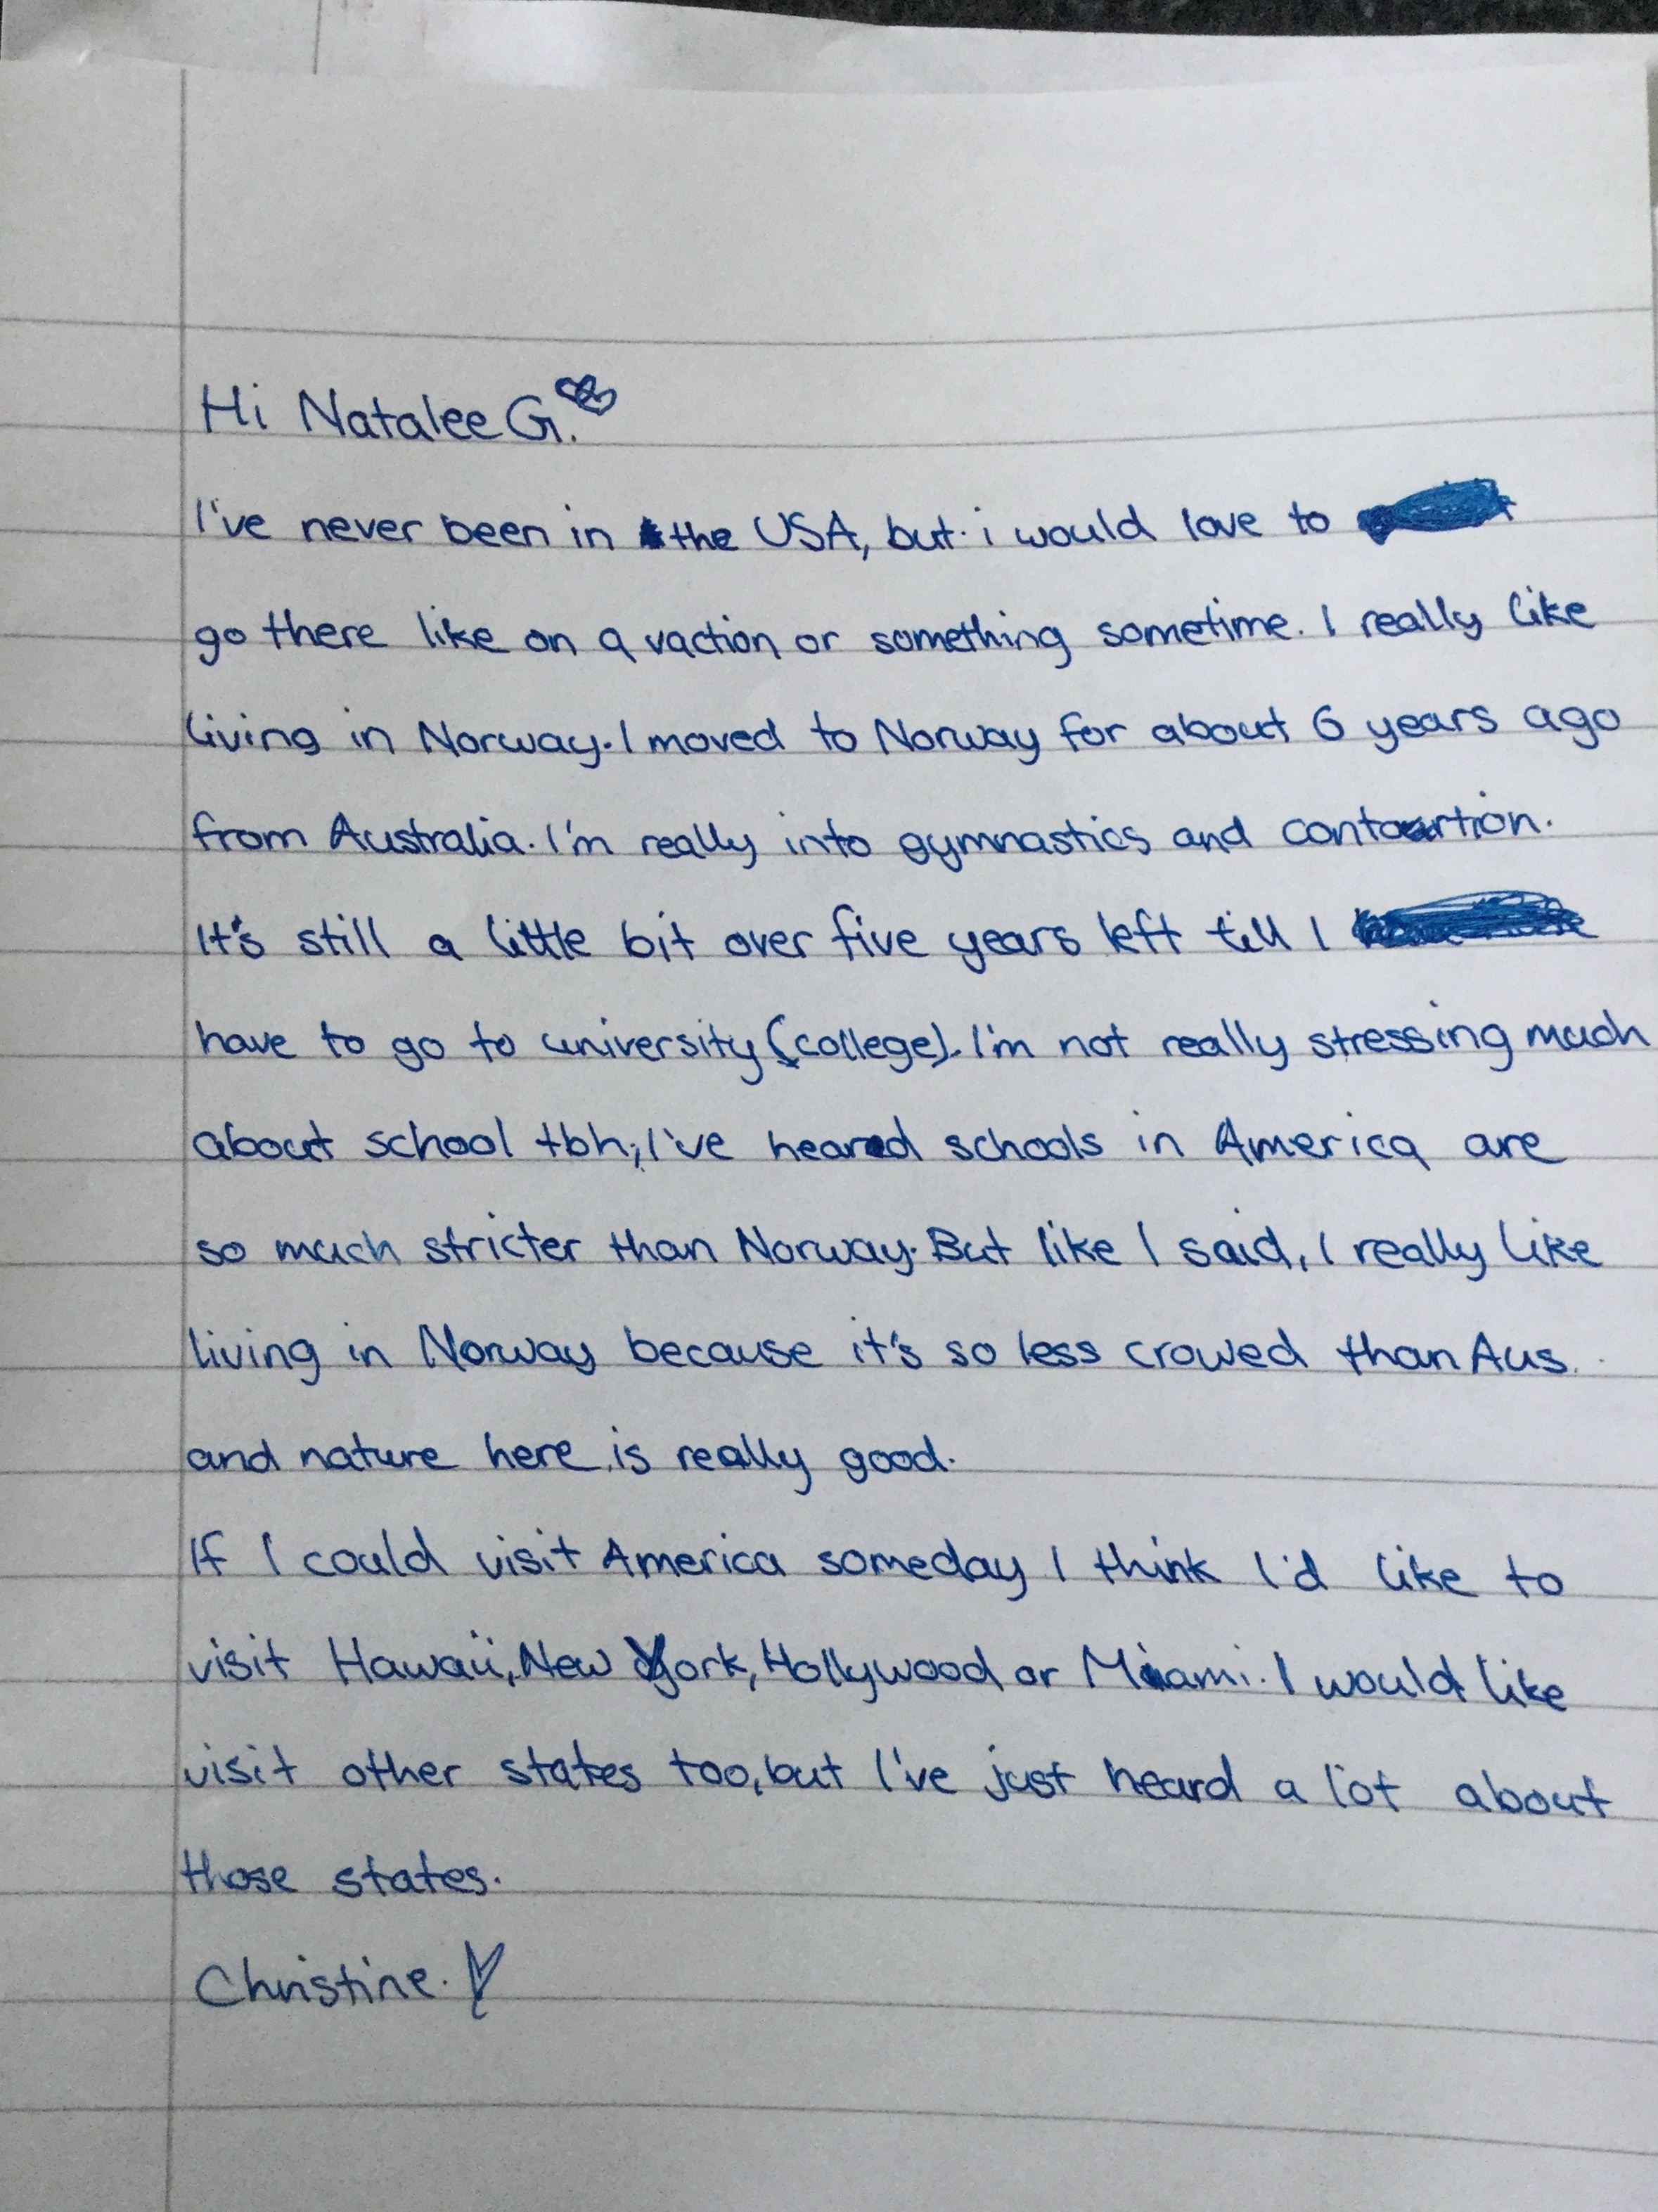 Hi Natalee G.
I've never been in the USA, but i would love to
go there like on a vaction or something sometime. I really like
living in Norway. I moved to Norway for about 6 years ago
from Australia. I'm really into gymnastics and contortion.
It's still a little bit over five years left till I
have to go to university (college). I'm not really stressing much
about school tbh, I've heared schools in America are
so much stricter than Norway. But like I said, I really like
living in Norway because it's so less crowed than Aus.
and nature here is really good.
If I could visit America someday I think I'd like to
visit Hawaii, New York, Hollywood or Miami. I would like
visit other states too, but I've just heard a lot about
those states.
Christine.